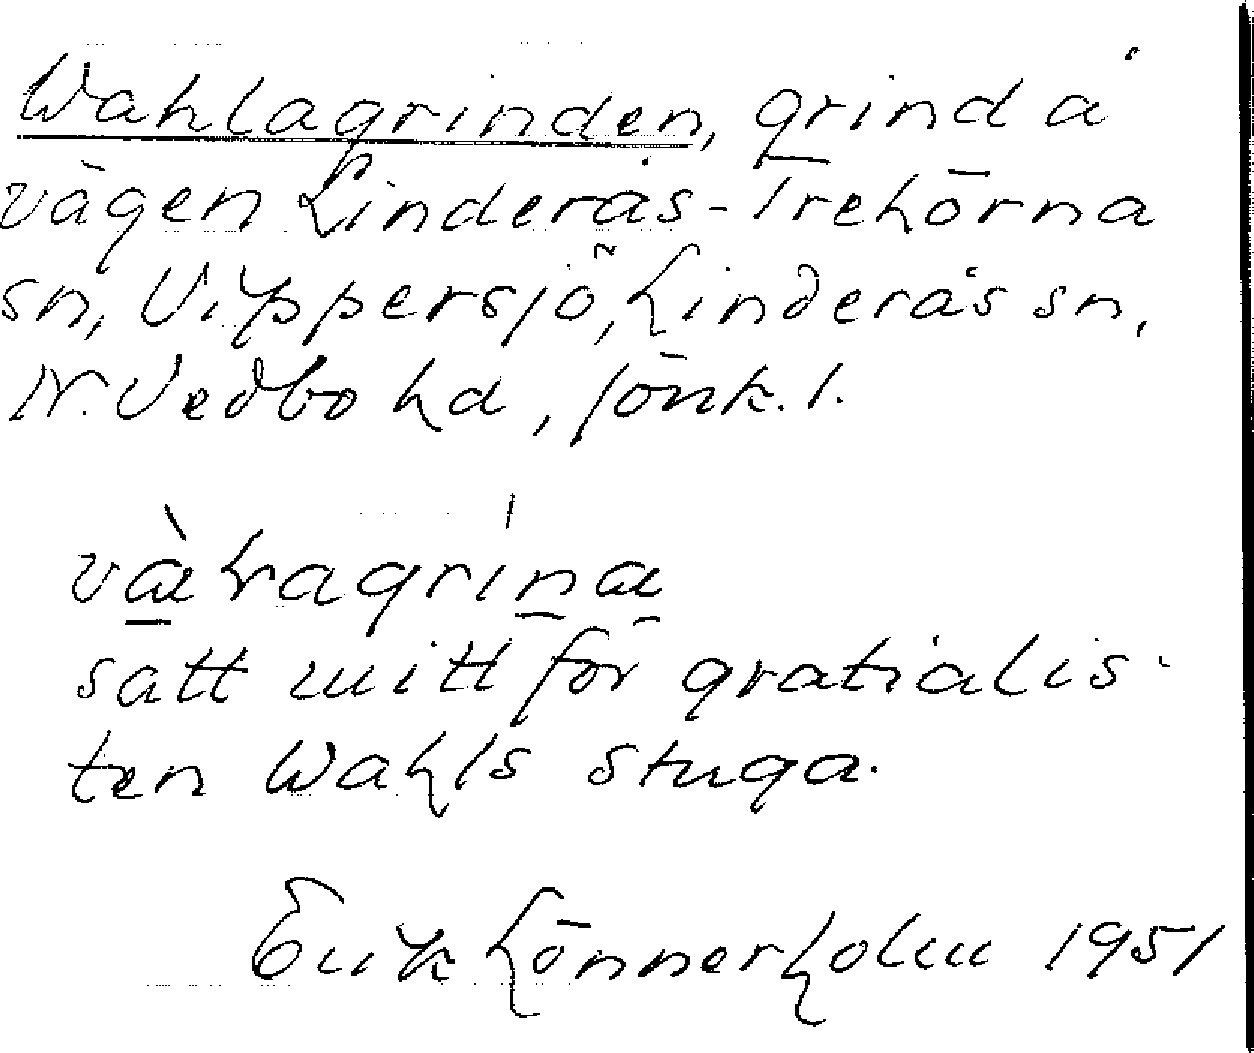 Wahlagrinden, grind å
vägen Linderås-Trehörna
sn, Vippersjö, Linderås sn,
N. Vedbo hd, Jönk. l.
satt mitt för gratialis-
ten Wahls stuga.
Erik Lönnerholm 1951